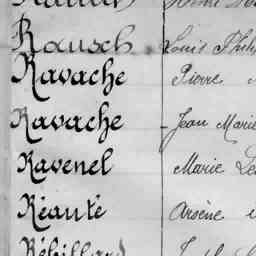 Rausch Louis Phili
Ravache Pierre
Ravache Jean Marie
Ravenel Marie Le
Réauté Arsène
Rébillard